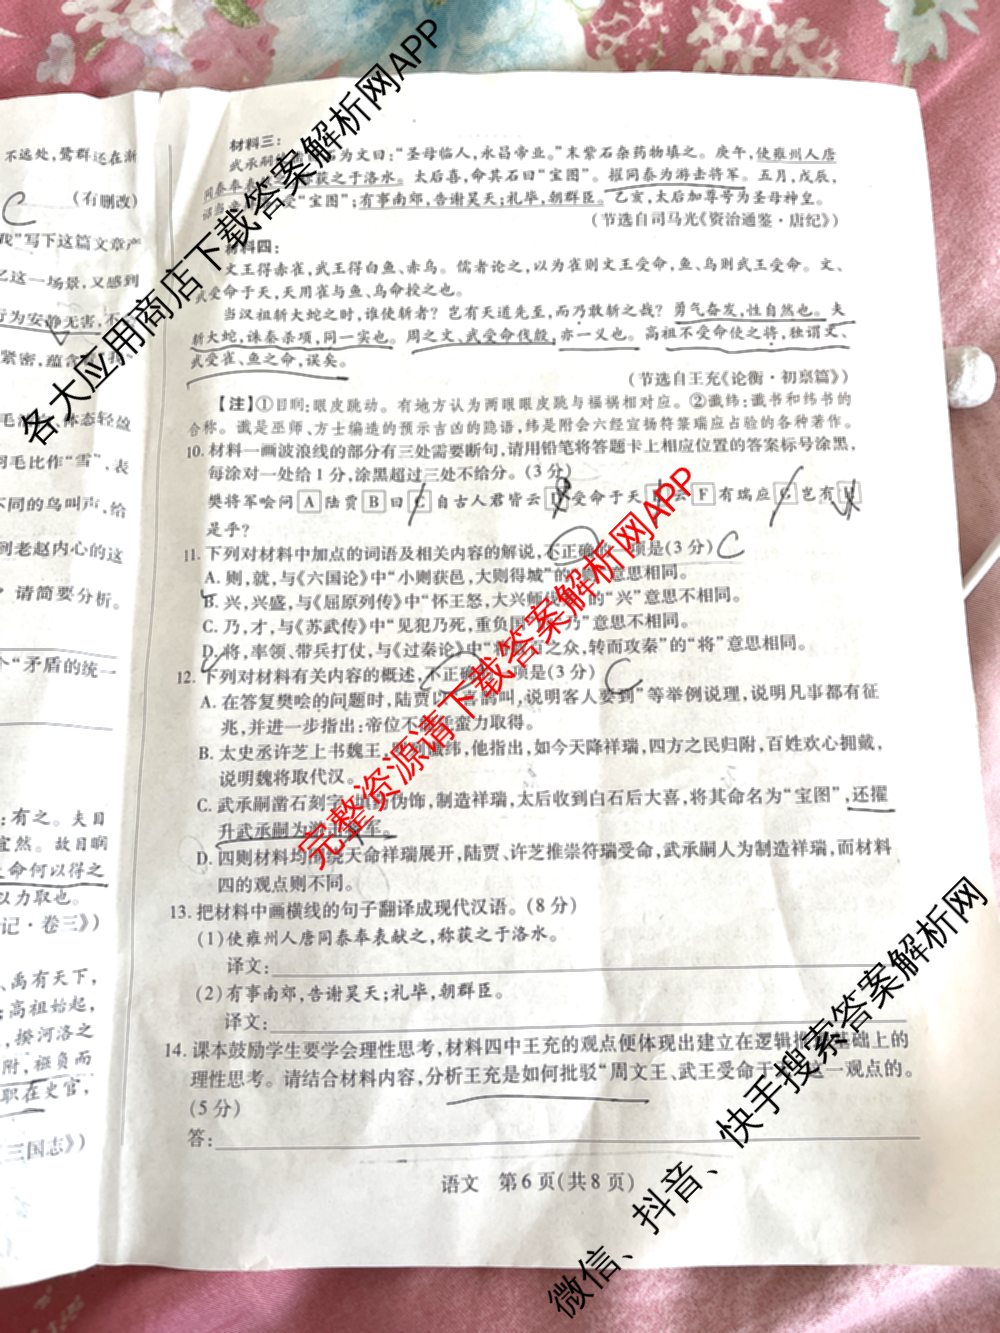 不远处,鹭群还在渐
C
(有删改)
我”写下这篇文章产
乙这一场景,又感到
行为安静无害,不
紧密,蕴含
毛洁 体态轻盈
羽毛比作“雪”,表
不同的鸟叫声,给
到老赵内心的这
请简要分析。
个“矛盾的统一
;有之。夫目
宜然。故目瞤
命何以得之
以力取也。
记·卷三》)
、禹有天下,
;高祖始起,
,揆河洛之
附,襁负而
职在史官,
三国志》)
材料三:
武承嗣 石为文曰:“圣母临人,永昌帝业。”末紫石杂药物填之。庚午,使雍州人唐
同泰奉表 称获之于洛水。太后喜,命其石曰“宝图”。擢同泰为游击将军。五月,戊辰,
诏当 受“宝图”;有事南郊,告谢昊天;礼毕,朝群臣。乙亥,太后加尊号为圣母神皇。
(节选自司马光《资治通鉴·唐纪》)
材料四:
文王得赤雀,武王得白鱼、赤乌。儒者论之,以为雀则文王受命,鱼、乌则武王受命。文、
武受命于天,天用雀与鱼、乌命授之也。
当汉祖斩大蛇之时,谁使斩者?岂有天道先至,而乃敢斩之哉?勇气奋发,性自然也。夫
斩大蛇,诛秦杀项,同一实也。周之文、武受命伐殷,亦一义也。高祖不受命使之将,独谓文、
武受雀、鱼之命,误矣。
(节选自王充《论衡·初禀篇》)
【注】①目瞤:眼皮跳动。有地方认为两眼眼皮跳与福祸相对应。②谶纬:谶书和纬书的
合称。谶是巫师、方士编造的预示吉凶的隐语,纬是附会六经宣扬符箓瑞应占验的各种著作。
10.材料一画波浪线的部分有三处需要断句,请用铅笔将答题卡上相应位置的答案标号涂黑,
每涂对一处给1分,涂黑超过三处不给分。(3分)
樊将军哙问A陆贾B曰C自古人君皆云D受命于天E云F有瑞应G岂有H
是乎?
11.下列对材料中加点的词语及相关内容的解说,不正确的一项是(3分) C
A.则,就,与《六国论》中“小则获邑,大则得城”的 意思相同。
B.兴,兴盛,与《屈原列传》中“怀王怒,大兴师伐 的“兴”意思不相同。
C.乃,才,与《苏武传》中“见犯乃死,重负国 乃”意思不相同。
D.将,率领、带兵打仗,与《过秦论》中“将数百之众,转而攻秦”的“将”意思相同。
12.下列对材料有关内容的概述,不正确的一项是(3分) C
A.在答复樊哙的问题时,陆贾以“喜鹊叫,说明客人要到”等举例说理,说明凡事都有征
兆,并进一步指出:帝位不能凭蛮力取得。
B.太史丞许芝上书魏王, 谶纬,他指出,如今天降祥瑞,四方之民归附,百姓欢心拥戴,
说明魏将取代汉。
C.武承嗣凿石刻字,填药伪饰,制造祥瑞,太后收到白石后大喜,将其命名为“宝图”,还擢
升武承嗣为游击将军。
D.四则材料均围绕天命祥瑞展开,陆贾、许芝推崇符瑞受命,武承嗣人为制造祥瑞,而材料
四的观点则不同。
13.把材料中画横线的句子翻译成现代汉语。(8分)
(1)使雍州人唐同泰奉表献之,称获之于洛水。
译文:
(2)有事南郊,告谢昊天;礼毕,朝群臣。
译文:
14.课本鼓励学生要学会理性思考,材料四中王充的观点便体现出建立在逻辑推 基础上的
理性思考。请结合材料内容,分析王充是如何批驳“周文王、武王受命于 这一观点的。
(5分)
答:
语文 第6页(共8页)
各大应用商店下载答案解析网APP
完整资源请下载答案解析网APP
微信、抖音、快手搜索答案解析网